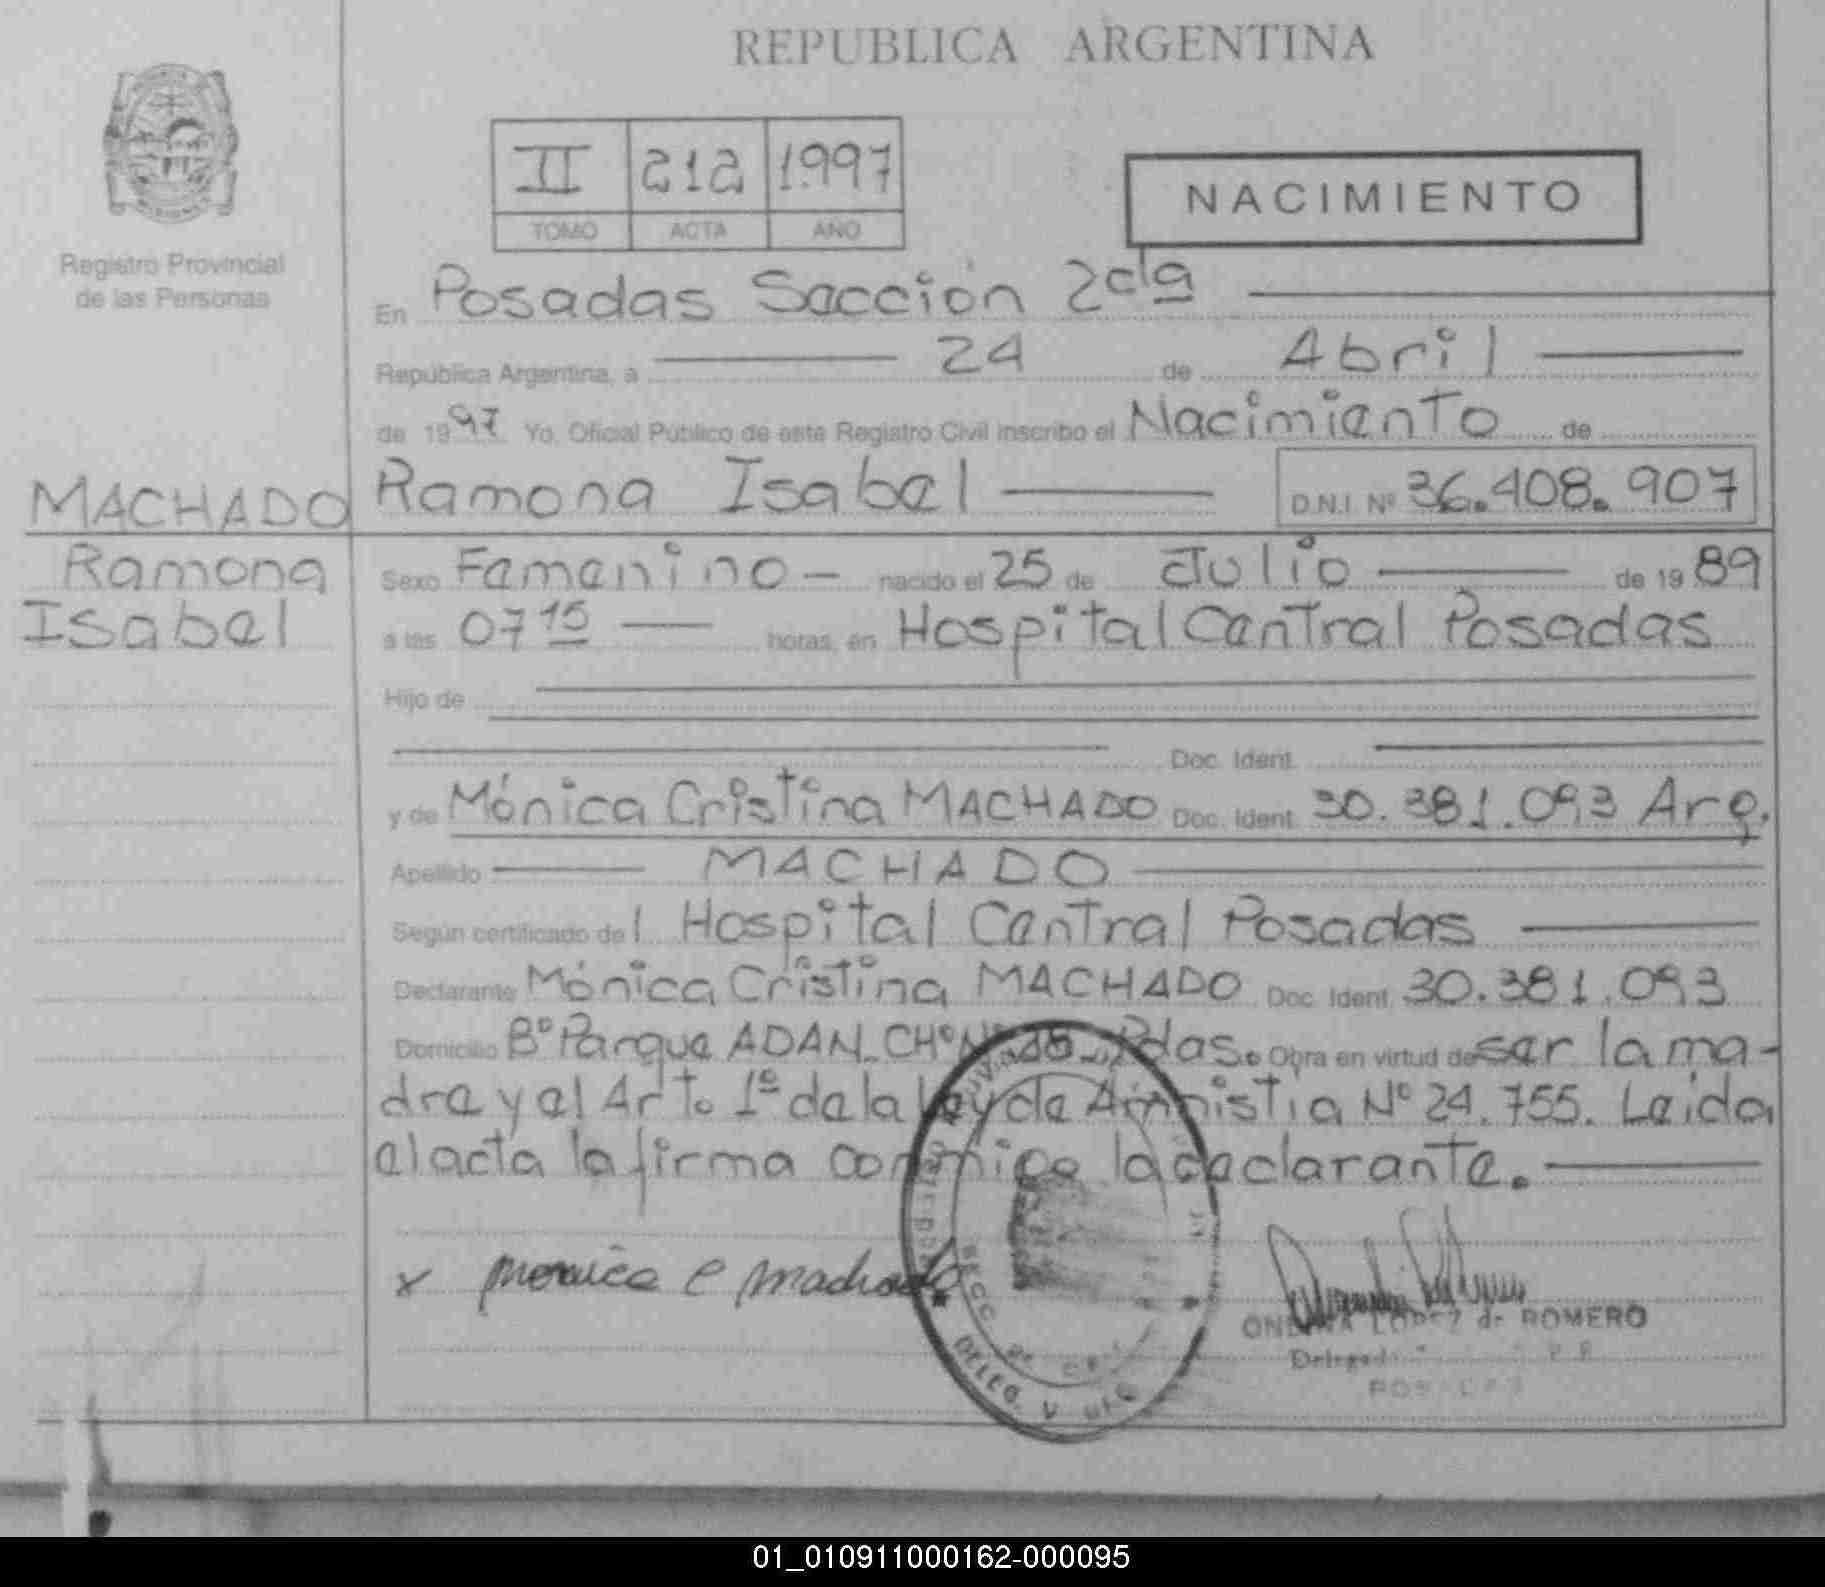 REPUBLICA ARGENTINA
II 212 1997
TOMO ACTA AÑO
NACIMIENTO
Registro Provincial
de las Personas
En Posadas Sección 2da
República Argentina, a 24 de Abril
de 1997 Yo. Oficial Público de este Registro Civil inscribo el Nacimiento de
MACHADO Ramona Isabel D.N.I. Nº 36.408.907
Ramona
Isabel
Sexo Femenino - nacido el 25 de Julio de 1989
a las 07 15 horas, en Hospital Central Posadas
Hijo de
Doc. Ident.
y de Mónica Cristina MACHADO Doc. Ident. 30.381.093 Arg.
Apellido MACHADO
Según certificado del Hospital Central Posadas
Declarante Mónica Cristina MACHADO Doc. Ident. 30.381.093
Domicilio Bº Parque ADAN_CHº Pdas. Obra en virtud de ser la ma-
dre y el Arto 1º de la Ley de Amnistia Nº 24.755. Leida
el acta la firma conmigo la declarante.
x Monica C Machado
ONDINA LOPEZ de ROMERO
SECC 2ª
DELEG.
01_010911000162-000095